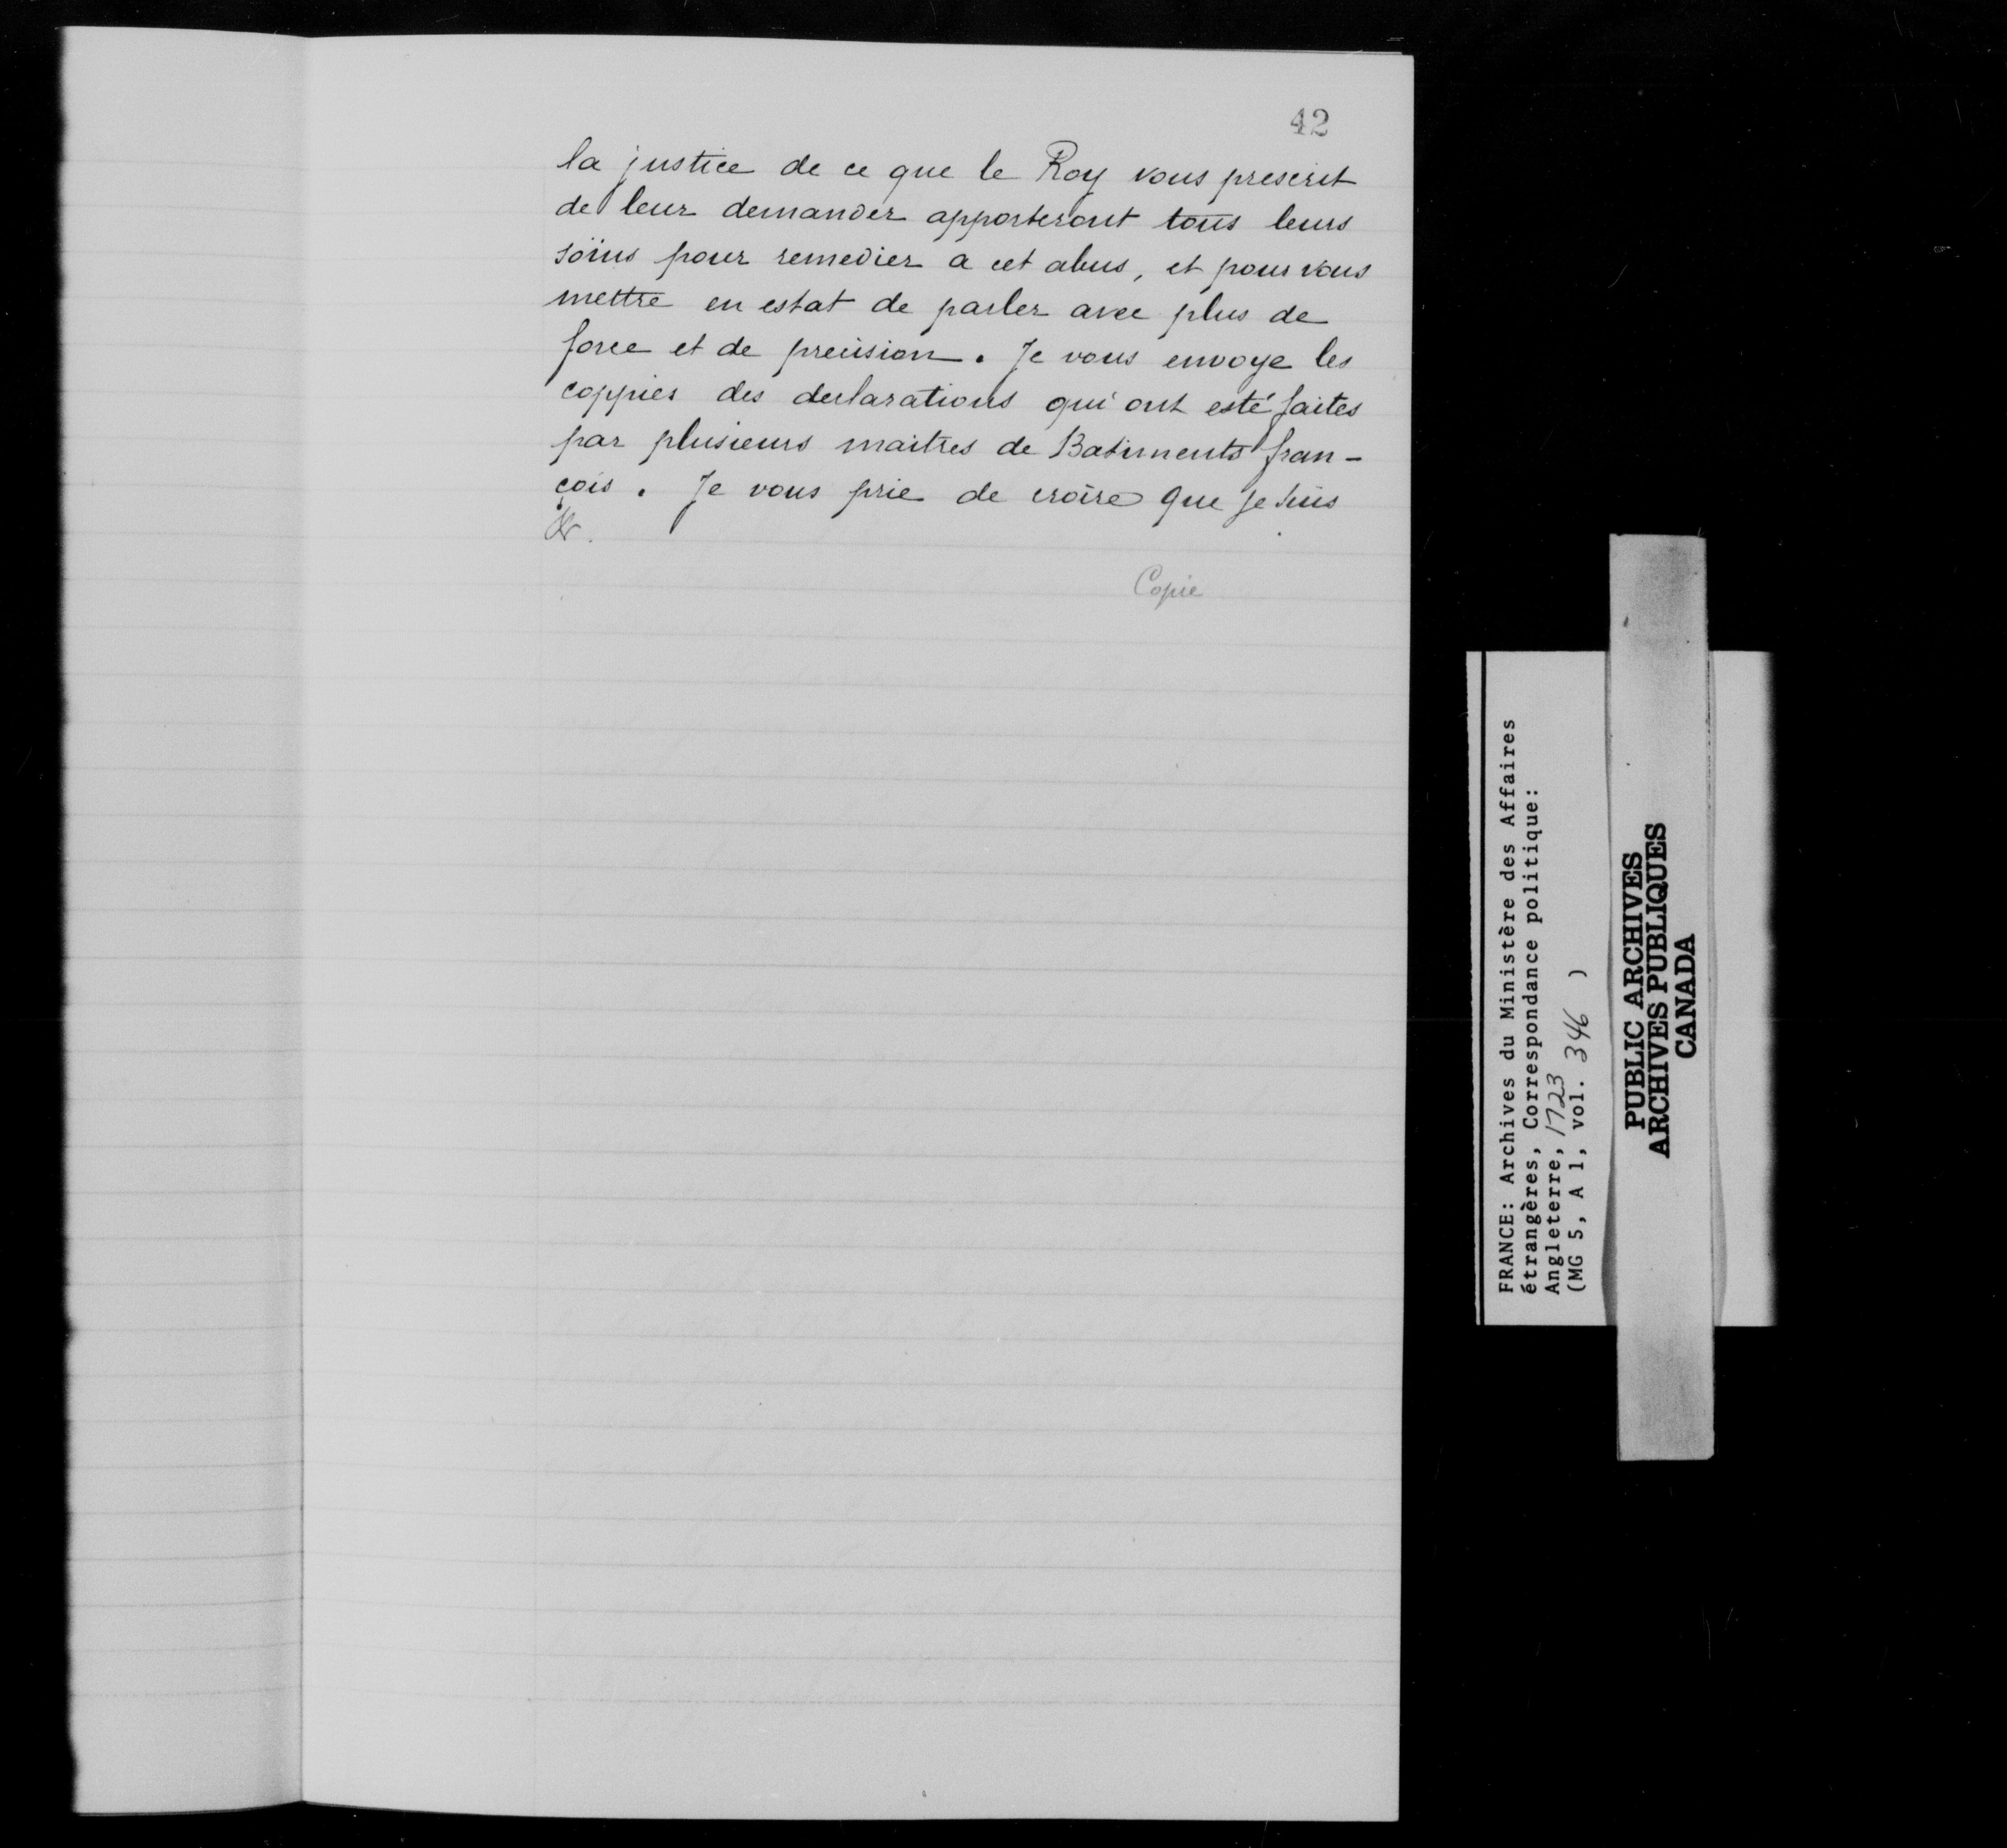 42
la justice de ce que le Roy vous prescrit
de leur demander apporteront tous leurs
soins pour remedier a cet abus, et pour vous
mettre en estat de parler avec plus de
force et de precision. Je vous envoye les
coppies des declarations qui ont esté faites
par plusieurs maitres de Batiments fran-
çois. Je vous prie de croire que je suis
&.
Copie
FRANCE: Archives du Ministère des Affaires
étrangères, Correspondance politique:
Angleterre, 1723
(MG 5, A 1, vol. 346 )
PUBLIC ARCHIVES
ARCHIVES PUBLIQUES
CANADA